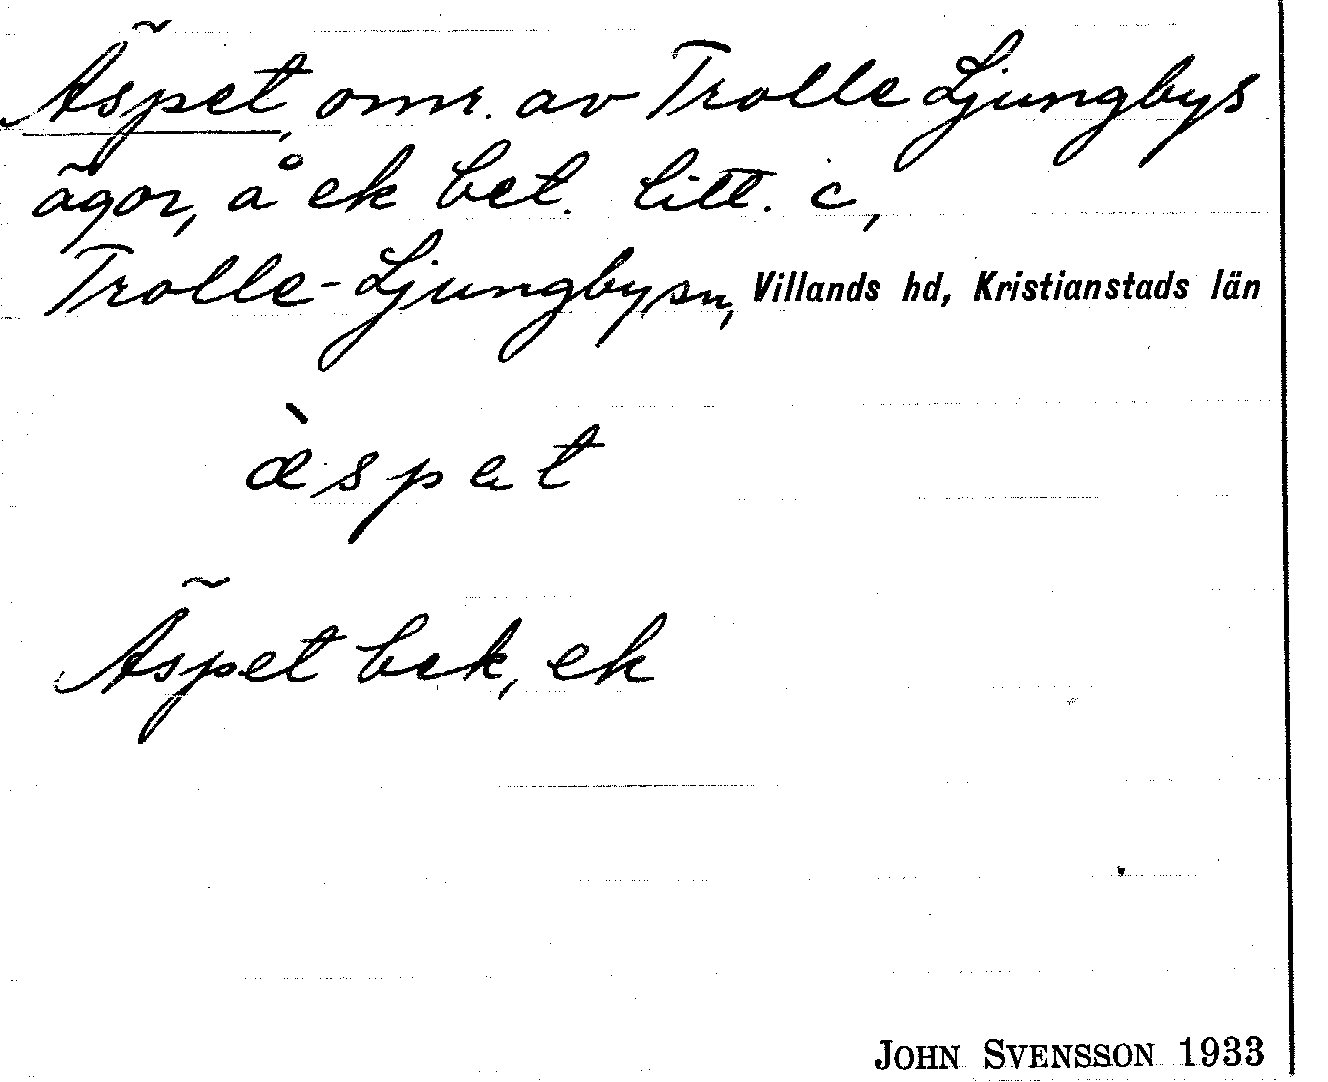 Äspet, omr. av Trolle Ljungbys
ägor, å ek bet. litt. c,
Trolle-Ljungby sn, Villands hd, Kristianstads län
æ̀spət
Äspet bek, ek
JOHN SVENSSON 1933